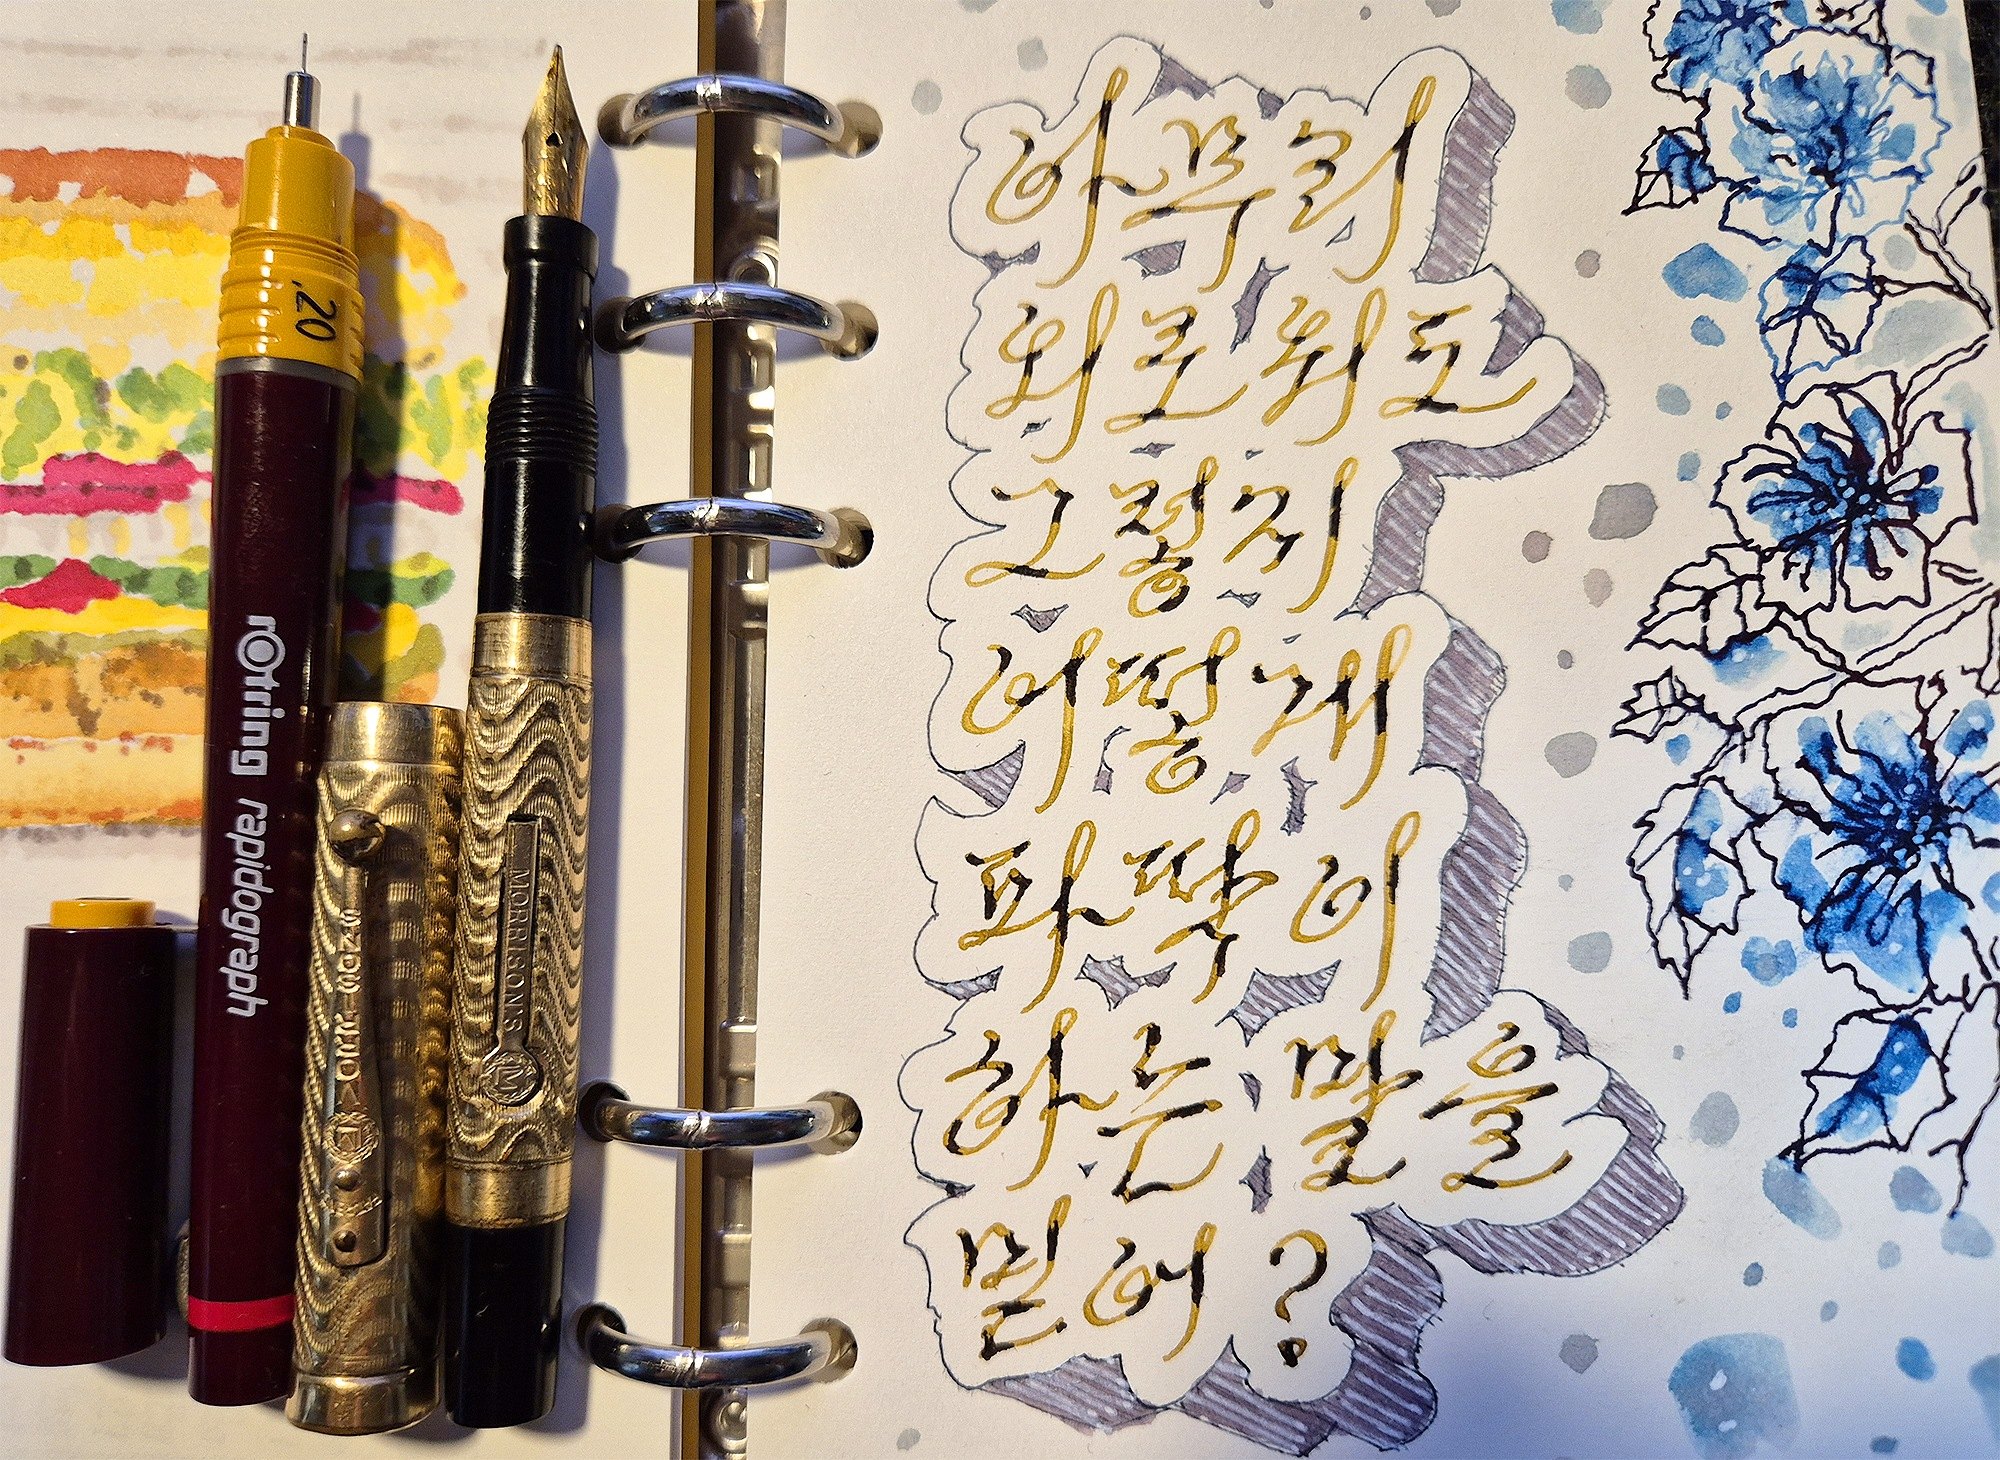 .20
rotring rapidograph
MORRISON'S
아무리
외로워도
그렇지
어떻게
파딱이
하는 말을
믿어?